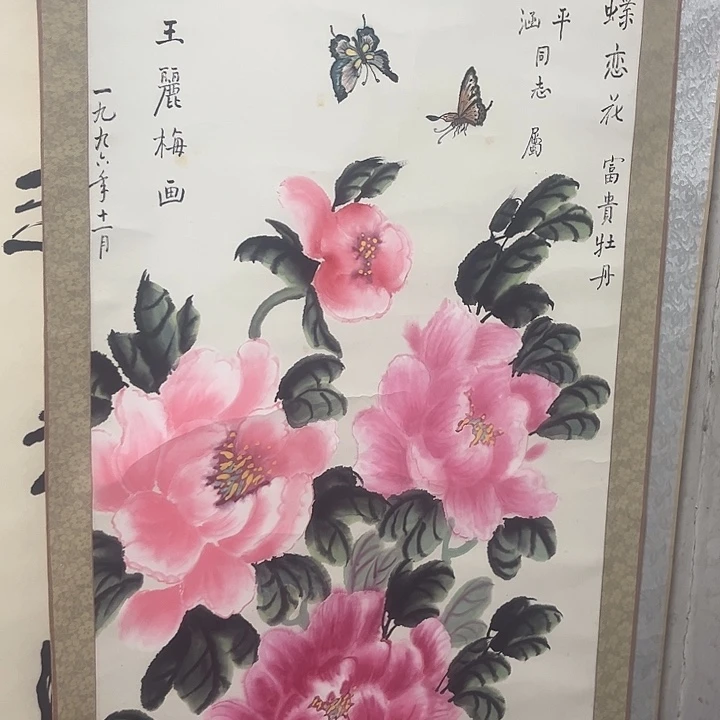 蝶恋花 富貴牡丹
平
涵同志 屬
王麗梅画
一九九六年十一月